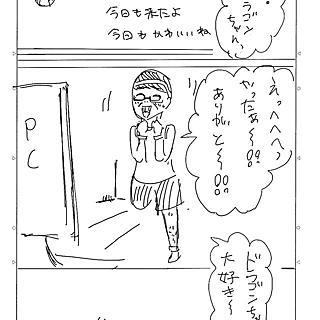 ラゴン
ちゃんっ
今日も来たよ
今日もかわいいね
えっへへへっ
やったあ〜!!
ありがと〜!!
PC
ドラゴンちゃ
大好き〜